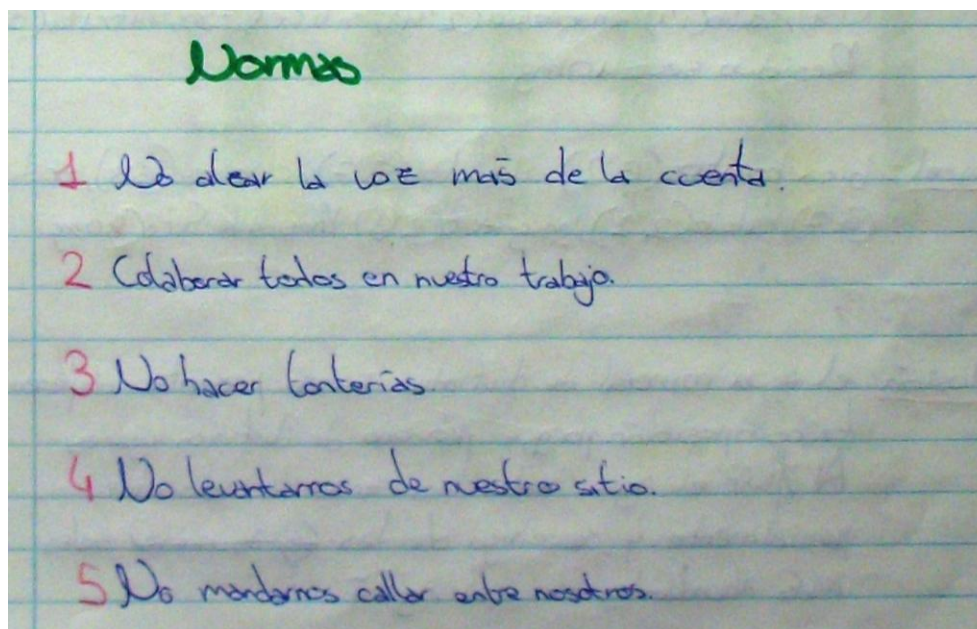 Normas
1 No alzar la voz más de la cuenta.
2 Colaborar todos en nuestro trabajo.
3 No hacer tonterías.
4 No levantarnos de nuestro sitio.
5 No mandarnos callar entre nosotros.